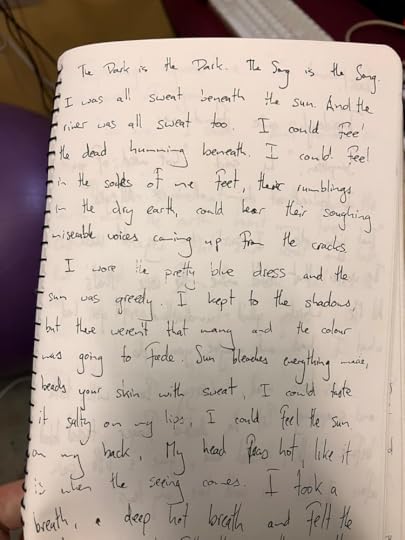 The Dark is the Dark. The Song is the Song.
I was all sweat beneath the sun. And the
river was all sweat too. I could feel
the dead humming beneath. I could feel
in the soles of me feet, their rumblings
in the dry earth, could hear their soughing
miseable voices coming up from the cracks.
I wore the pretty blue dress and the
sun was greedy. I kept to the shadows,
but there weren't that many and the colour
was going to fade. Sun bleaches everything
beads your skin with sweat, I could taste
it salty on my lips, I could feel the sun
on my back, My head was hot, like it
is when the seeing comes. I took a
breath, a deep hot breath and felt the